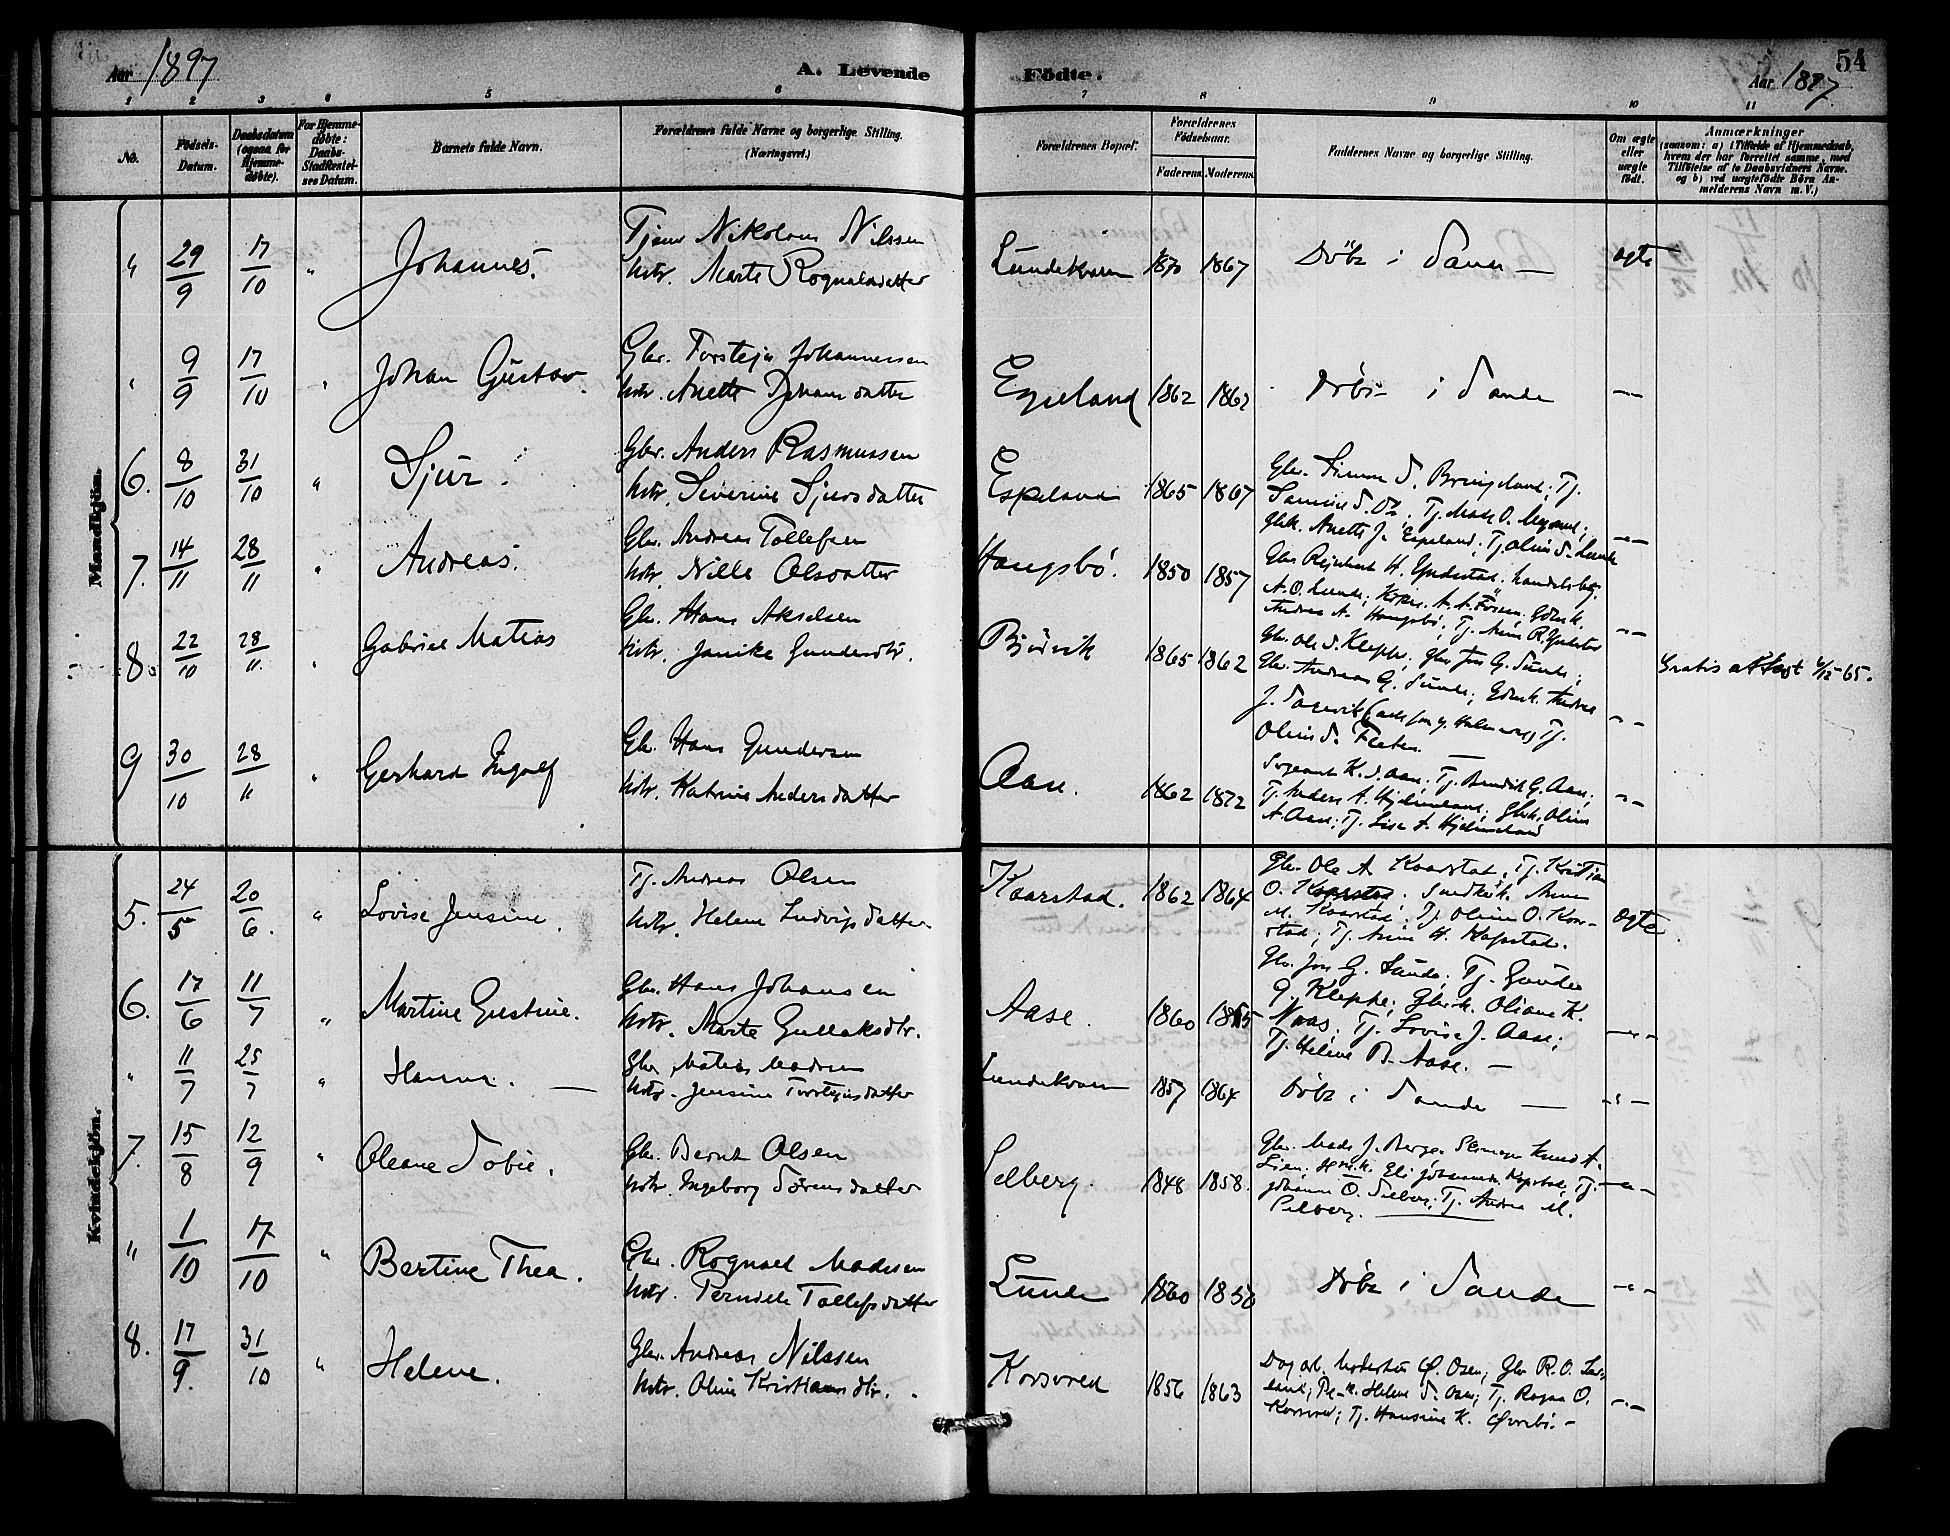 Aar 1897
A. Levende Födte.
Aar 1897
54
1 2 3 4 5 6 7 8 9 10 11
No.
Födsels-
Datum.
Daabsdatum
(ogsaa for
Hjemme-
døbte).
For Hjemme-
døbte:
Daabs-
Stadfæstel-
ses Datum.
Barnets fulde Navn.
Forældrenes fulde Navne og borgerlige Stilling.
(Næringsvei.)
Forældrenes Bopæl.
Forældrenes
Födselsaar.
Faderens. Moderens.
Faddernes Navne og borgerlige Stilling.
Om ægte
eller
uægte
født.
Anmærkninger
(saasom: a) i Tilfælde af Hjemmedaab,
hvem der har forrettet samme, med
Tilföielse af to Daabsvidners Navne.
og b) ved uægtefödte Börn An-
melderens Navn m. V.)
Mandkjön.
" 29/9 17/10 " Johannes. Tjener Nikolaus Nilssen
hstr. Marte Rognaldsdatter
Lundekvam 1870 1867 Döbt i Sande — ægte
" 9/9 17/10 " Johan Gustav. Gbr. Torstejn Johannessen
hstr. Anette Johansdatter
Espeland 1862 1862 Döbt i Sande —"—
6. 8/10 31/10 " Sjur. Gbr. Anders Rasmussen
hstr. Severine Sjursdatter
Espeland 1865 1867 Gbr. Simon S. Bringeland; Tj.
Gbk. Anette J. Espeland; Tj. Olina S. Lunde —"—
7. 14/11 28/11 " Andreas. Gbr. Andreas Tollefsen
hstr. Nille Olsdatter
Hougsbö. 1850 1857 Gbr. Rejnhart H. Yndestad; handelsbetj.
A. O. Lunde; Kirkes. A. A. Förde; Gbmk.
Andrea A. Hougsbö; Tj. Anna R. Yndestad —"—
8. 22/10 28/11 " Gabriel Matias Gbr. Hans Akselsen
hstr. Janike Gundersdtr.
Bjørvik 1865 1862 Gbr. Ole S. Kleppe; Gbr. Jon G. Sunde;
Gbr. Andreas G. Sunde; Gbmk. Andrea
Olina S. Fleten. —"—
Gratis attest 6/12-65.
9 30/10 28/11 " Gerhard Ingolf Gbr. Hans Gundersen
hstr. Katrine Andersdatter
Aase. 1862 1872 Sergeant K. S. Aase; Tj. Bendik G. Aase;
Tj. Anders A. Hjelmeland; Gbrk. Olina
A. Aase; Tj. Lise A. Hjelmeland —"—
Kvindekjön.
5. 24/5 20/6. " Lovise Jensine. Tj. Andreas Olsen
hstr. Helene Ludvigsdatter
Kaarstad. 1862 1864 Gbr. Ole A Kaarstad; Tj. Kristian
O. Kaarstad; Anne
M. Kaarstad; Tj. Oline O. Kaar-
stad; Tj. Anne H. Kapstad. ægte.
6. 17/6 11/7 " Martine Gustine. Gbr. Hans Johansen
hstr. Marta Gullaksdtr.
Aase. 1860 1865 Gbr. Jon G. Sunde; Tj. Gunder
G. Kleppe; Gbrk. Oliane K.
Naas; Tj. Lovise J. Aase;
Tj. Helene B. Aase. — —"—
" 11/7 25/7 " Hanna. — Gbr. Matias Madsen
hstr. Jensine Torstejnsdatter
Lundekvam 1857 1864 Döbt i Sande — —"—
7. 15/8 12/9 " Oleane Sofie. Gbr. Bernt Olsen
hstr. Ingeborg Sörensdatter
Selberg. 1848 1858. Gbr. Mads J. Berge; Knud A.
Lien; Eli Johannesdtr. Kapstad; Tj.
Johanne O. Selberg; Tj. Andrea M.
Selberg. —"—
" 1/10 17/10 " Bertine Thea. Gbr. Rognald Madsen
hstr. Pernille Tollefsdatter
Lunde 1860 1856 Döbt i Sande —"—
8. 17/9. 31/10 " Helene. Gbr. Andreas Nilssen
hstr. Oline Kristiansdtr.
Korsvold 1856 1863 Gbr. R. O. Lad-
Helene S. Osen; Tj. Ragna O.
Korsvold; Tj. Hansine K. Øvrebö. — —"—